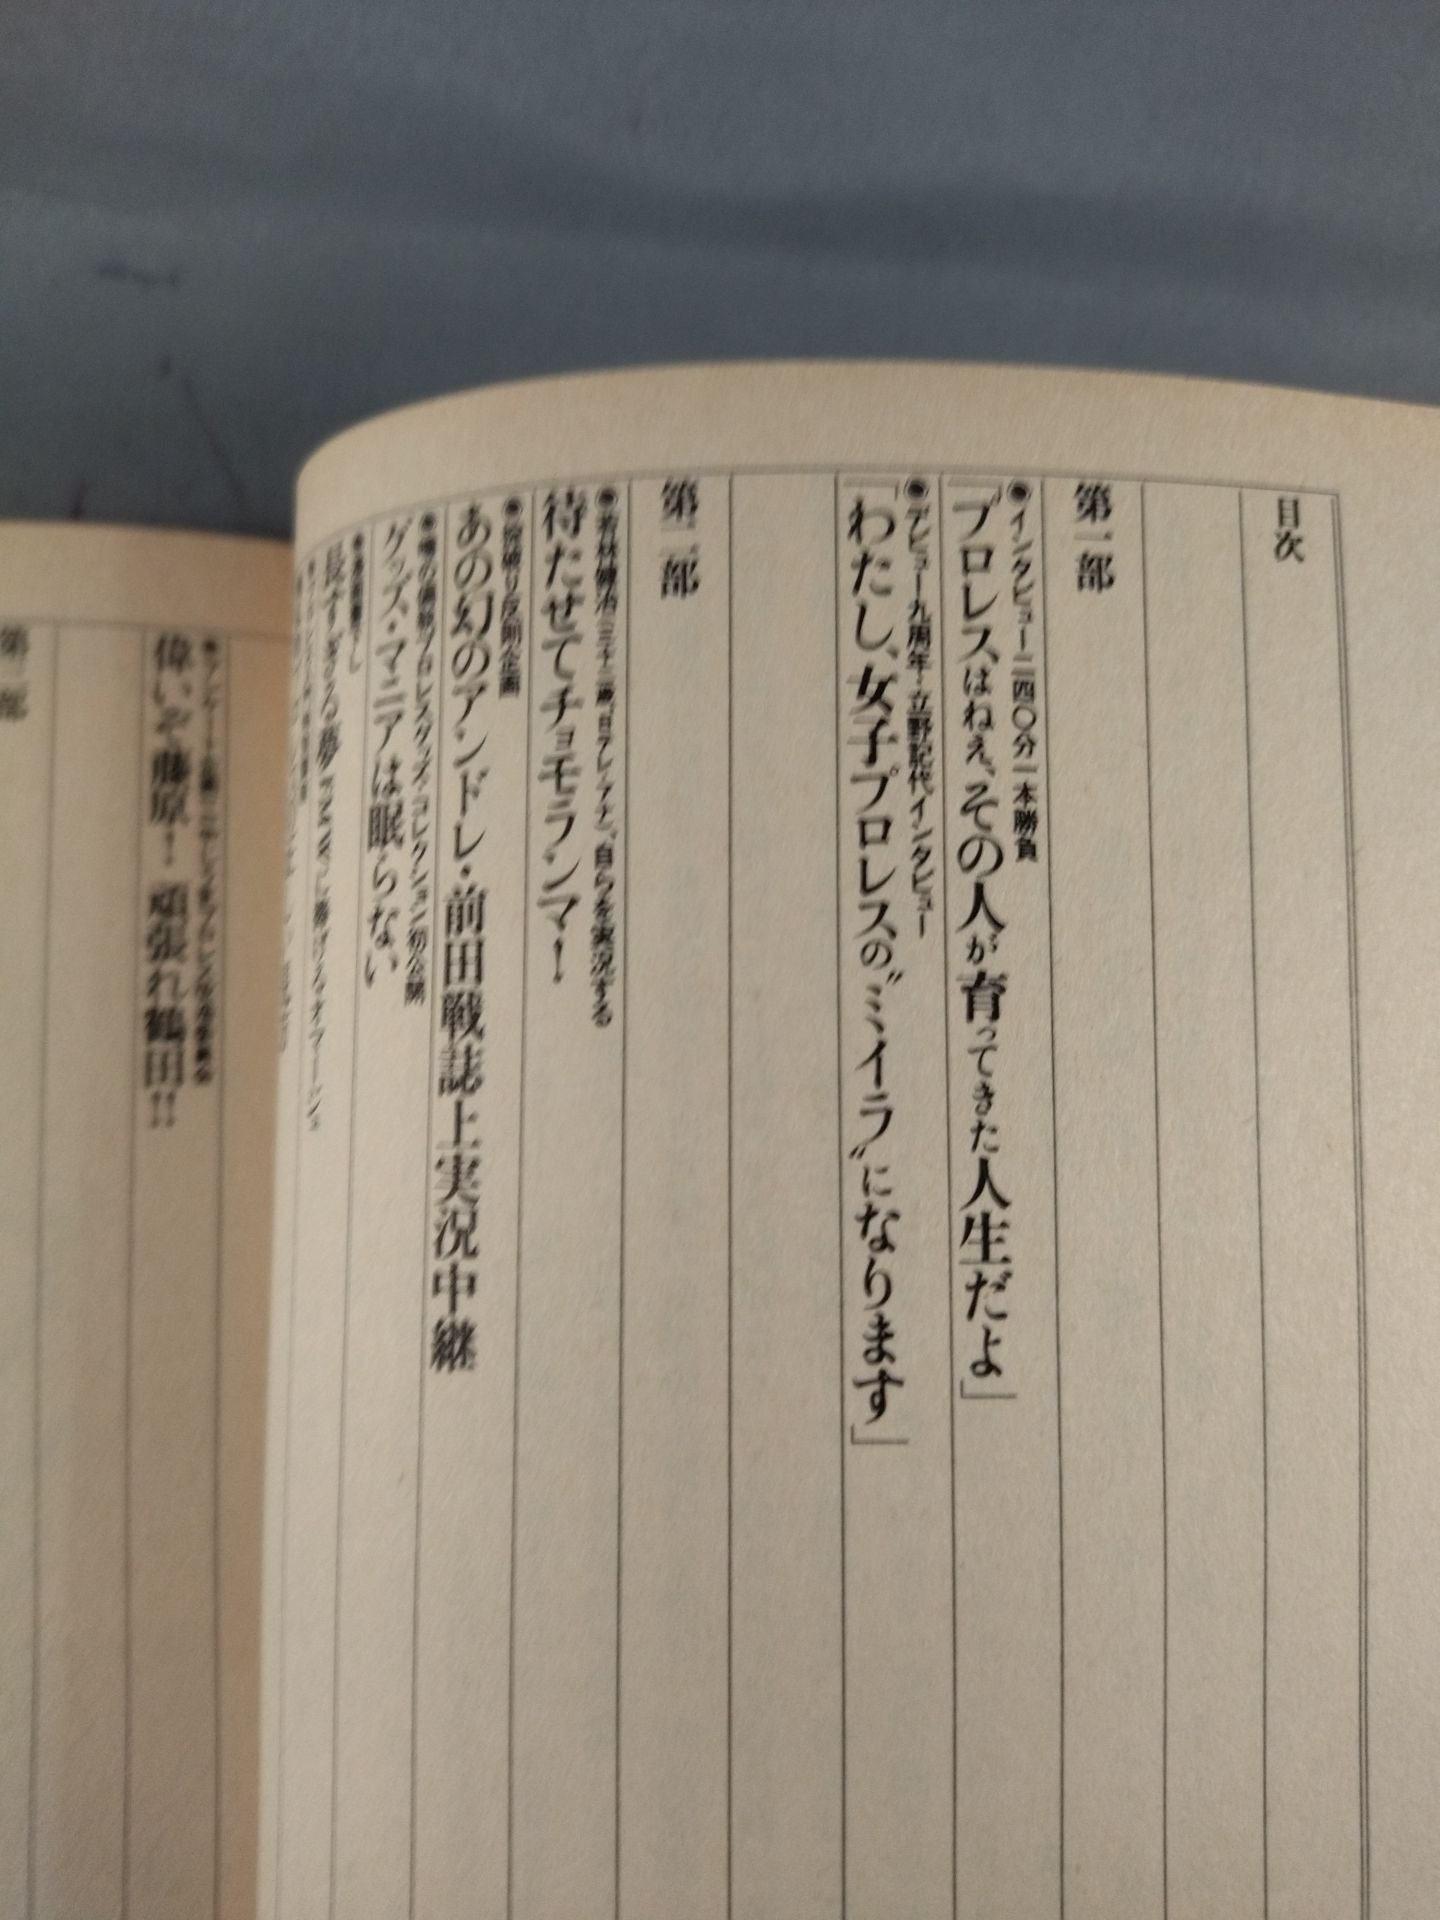 目次
第一部
●インタビュー二四〇分一本勝負
「プロレスはねえ、その人が育ってきた人生だよ」
●デビュー九周年・立野記代インタビュー
「わたし、女子プロレスの〝ミイラ〟になります」
第二部
●若林健治(三十二歳、日テレ・アナ)、自らを実況する
待たせてチョモランマ！
●掟破り反則企画
あの幻のアンドレ・前田戦誌上実況中継
●噂の備前プロレスグッズ・コレクション初公開
グッズ・マニアは眠らない
偉いぞ藤原！ 頑張れ鶴田!!
第三部